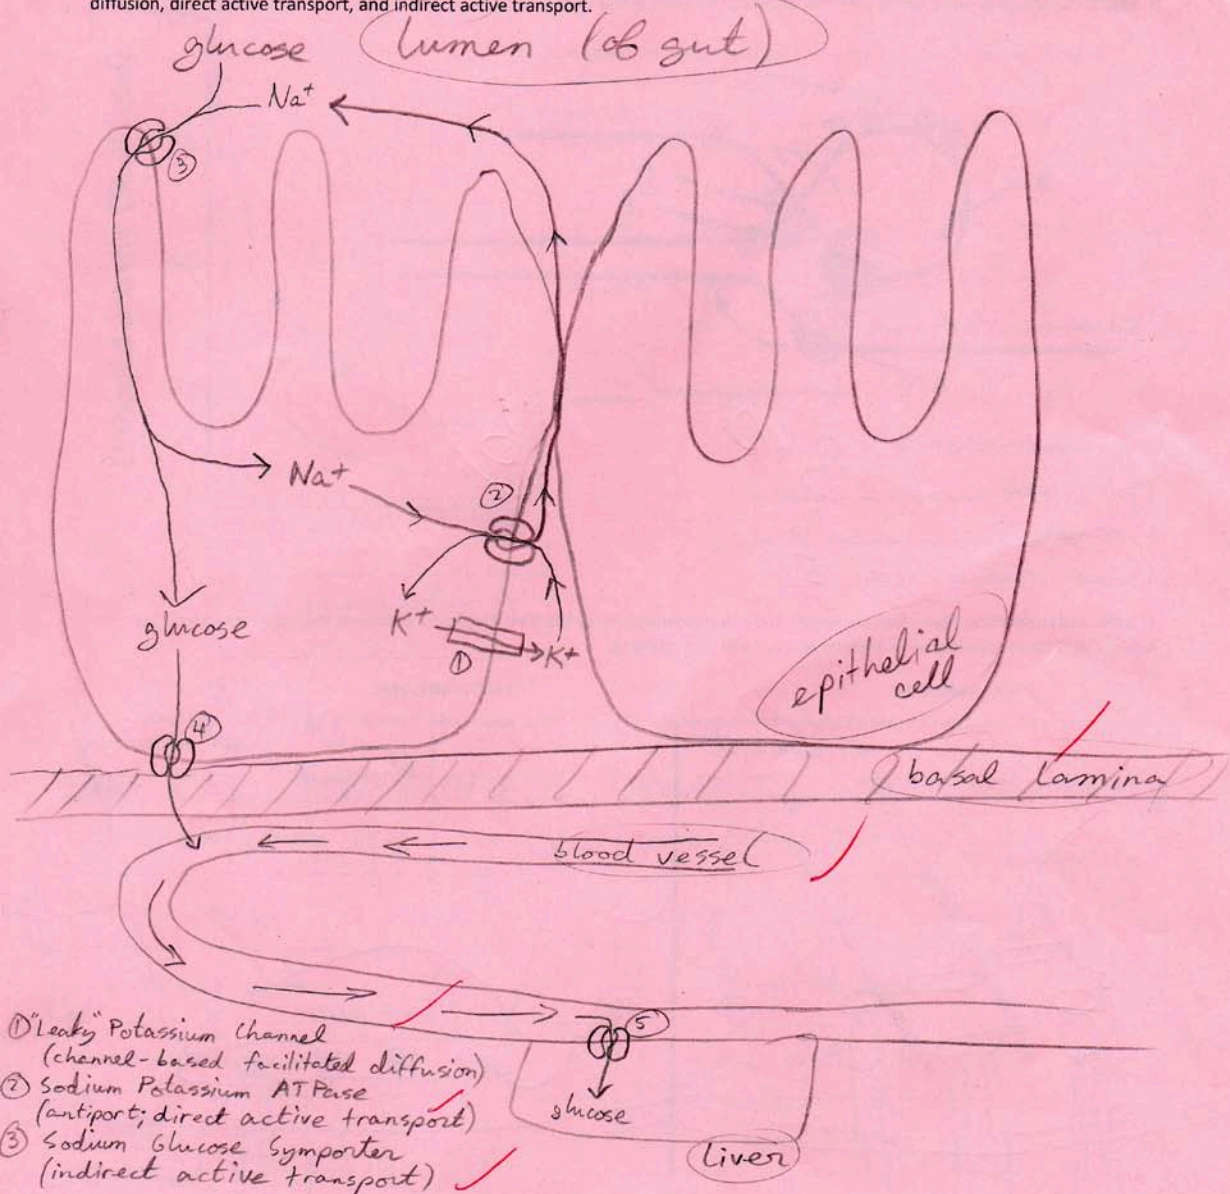 diffusion, direct active transport, and indirect active transport.
glucose
lumen (of gut)
Na+
③
②
Na+
K+
K+
①
glucose
④
epithelial
cell
basal lamina
blood vessel
⑤
glucose
Liver
① "Leaky" Potassium Channel
(channel-based facilitated diffusion)
② Sodium Potassium ATPase
(antiport; direct active transport)
③ Sodium Glucose Symporter
(indirect active transport)